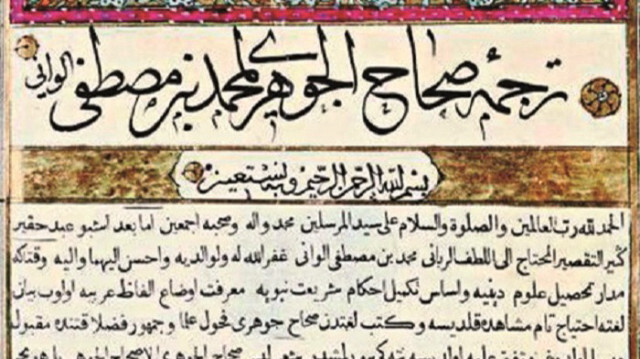 ترجمهٔ صحاح الجوهری لمحمد بن مصطفی الوانی
بسم الله الرحمن الرحیم وبه نستعین
الحمد لله رب العالمین والصلوة والسلام علی سید المرسلین محمد واله وصحبه اجمعین اما بعد اشبو عبد حقیر
کثیر التقصیر المحتاج الی اللطف الربانی محمد بن مصطفی الوانی غفر الله له ولوالدیه واحسن الیهما والیه وقتاکه
مدار تحصیل علوم دینیه واساس تکمیل احکام شریعت نبویه معرفت اوضاع الفاظ عربیه اولوب بیانی
لغته احتیاج تام مشاهده قلندیسه وکتب لغتدن صحاح جوهری فحول علما وجمهور فضلا قتنده مقبول